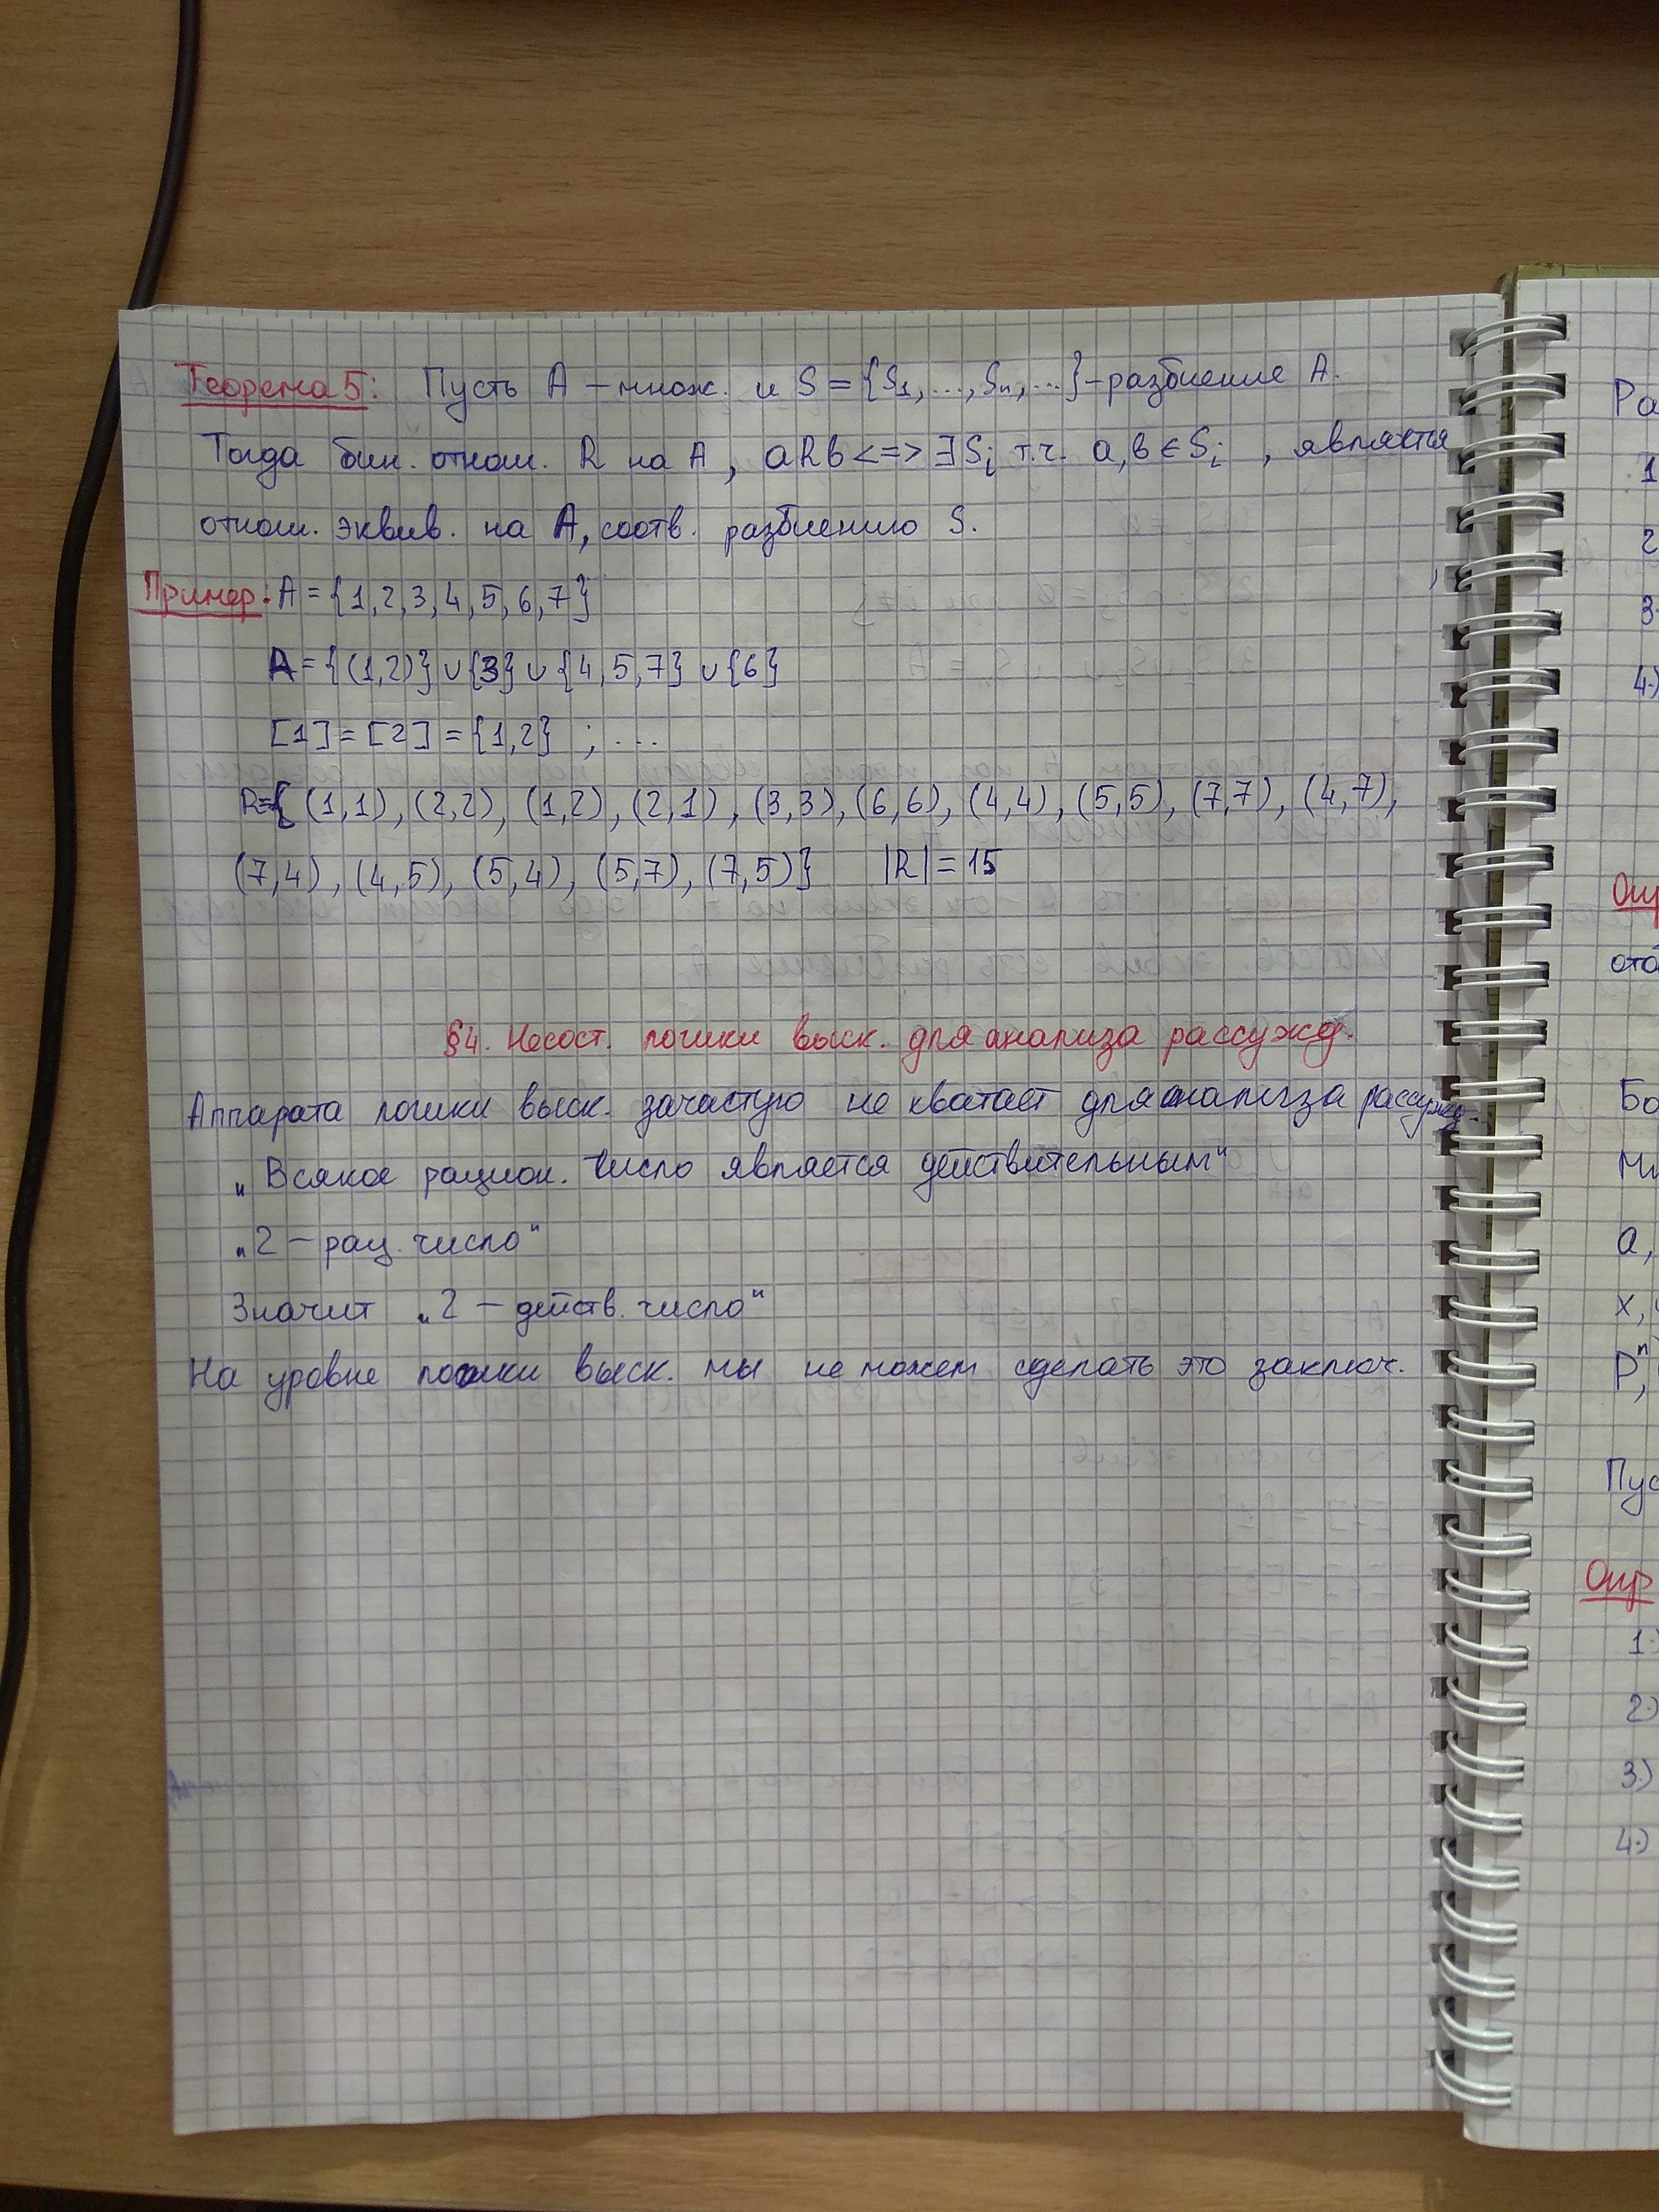 Теорема 5: Пусть A – множ. и S = {S₁, ..., Sₙ, ...} – разбиение A.
Тогда бин. отнош. R на A, aRb <=> ∃Sᵢ т.ч. a,b ∈ Sᵢ , является
отнош. эквив. на A, соотв. разбиению S.
Пример: A = {1,2,3,4,5,6,7}
A = {(1,2)} ∪ {3} ∪ {4,5,7} ∪ {6}
[1] = [2] = {1,2} ; ...
R={ (1,1), (2,2), (1,2), (2,1), (3,3), (6,6), (4,4), (5,5), (7,7), (4,7),
(7,4), (4,5), (5,4), (5,7), (7,5)} |R| = 15
§4. Несост. логики выск. для анализа рассужд.
Аппарата логики выск. зачастую не хватает для анализа рассужд.
„Всякое рацион. число является действительным“
„2 – рац. число“
Значит „2 – действ. число“
На уровне логики выск. мы не можем сделать это заключ.
Ра
1
2
3.
4.)
Опр
ото
Бо
Мн
a,
x,
Pⁿ,
Пус
Опр
1.)
2.)
3.)
4.)